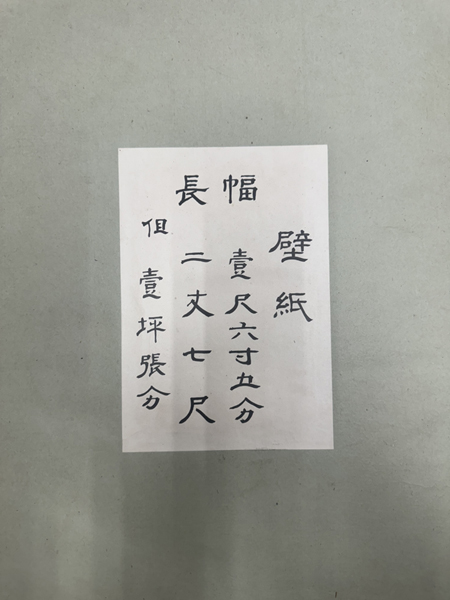 壁紙
幅 壹尺六寸五分
長 二丈七尺
但 壹坪張分